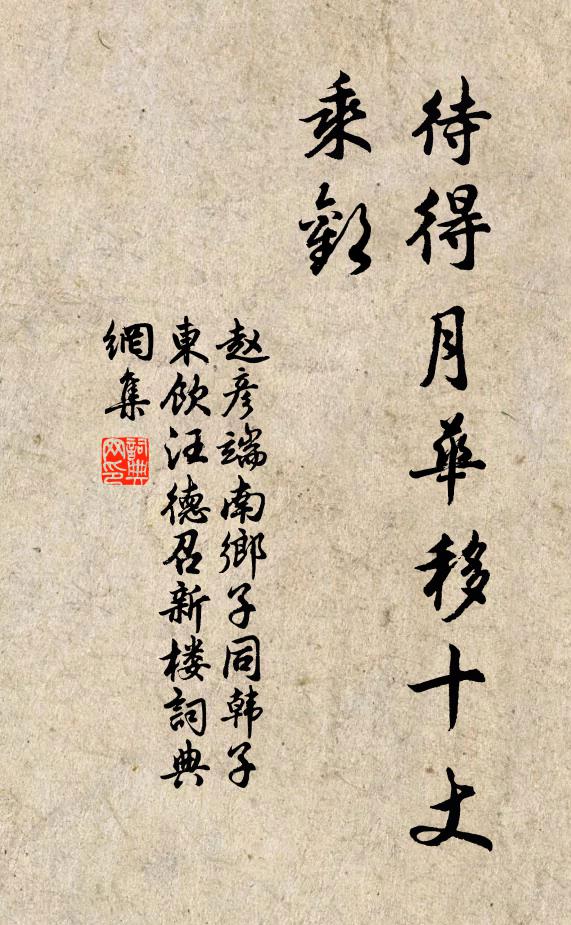 待得月華移十丈
乘歡
赵彦端南鄉子同韩子
東飲汪德召新楼詞典
網集
詞典
网印